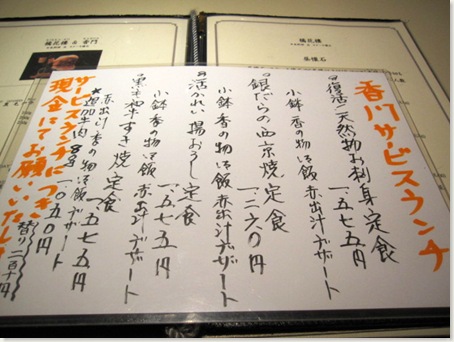 香川サービスランチ
復活!天然物お刺身定食
一、五七五円
小鉢 香の物 御飯 赤出汁 デザート
銀だらの西京焼定食
一、二六〇円
小鉢 香の物 御飯 赤出汁 デザート
活かれい揚おろし定食
一、五七五円
小鉢 香の物 御飯 赤出汁 デザート
黒毛和牛すき焼定食
一、五七五円
赤出汁 香の物 御飯 デザート
★追加牛肉
一、〇五〇円
サービスランチにつき
現金にてお願いいたします